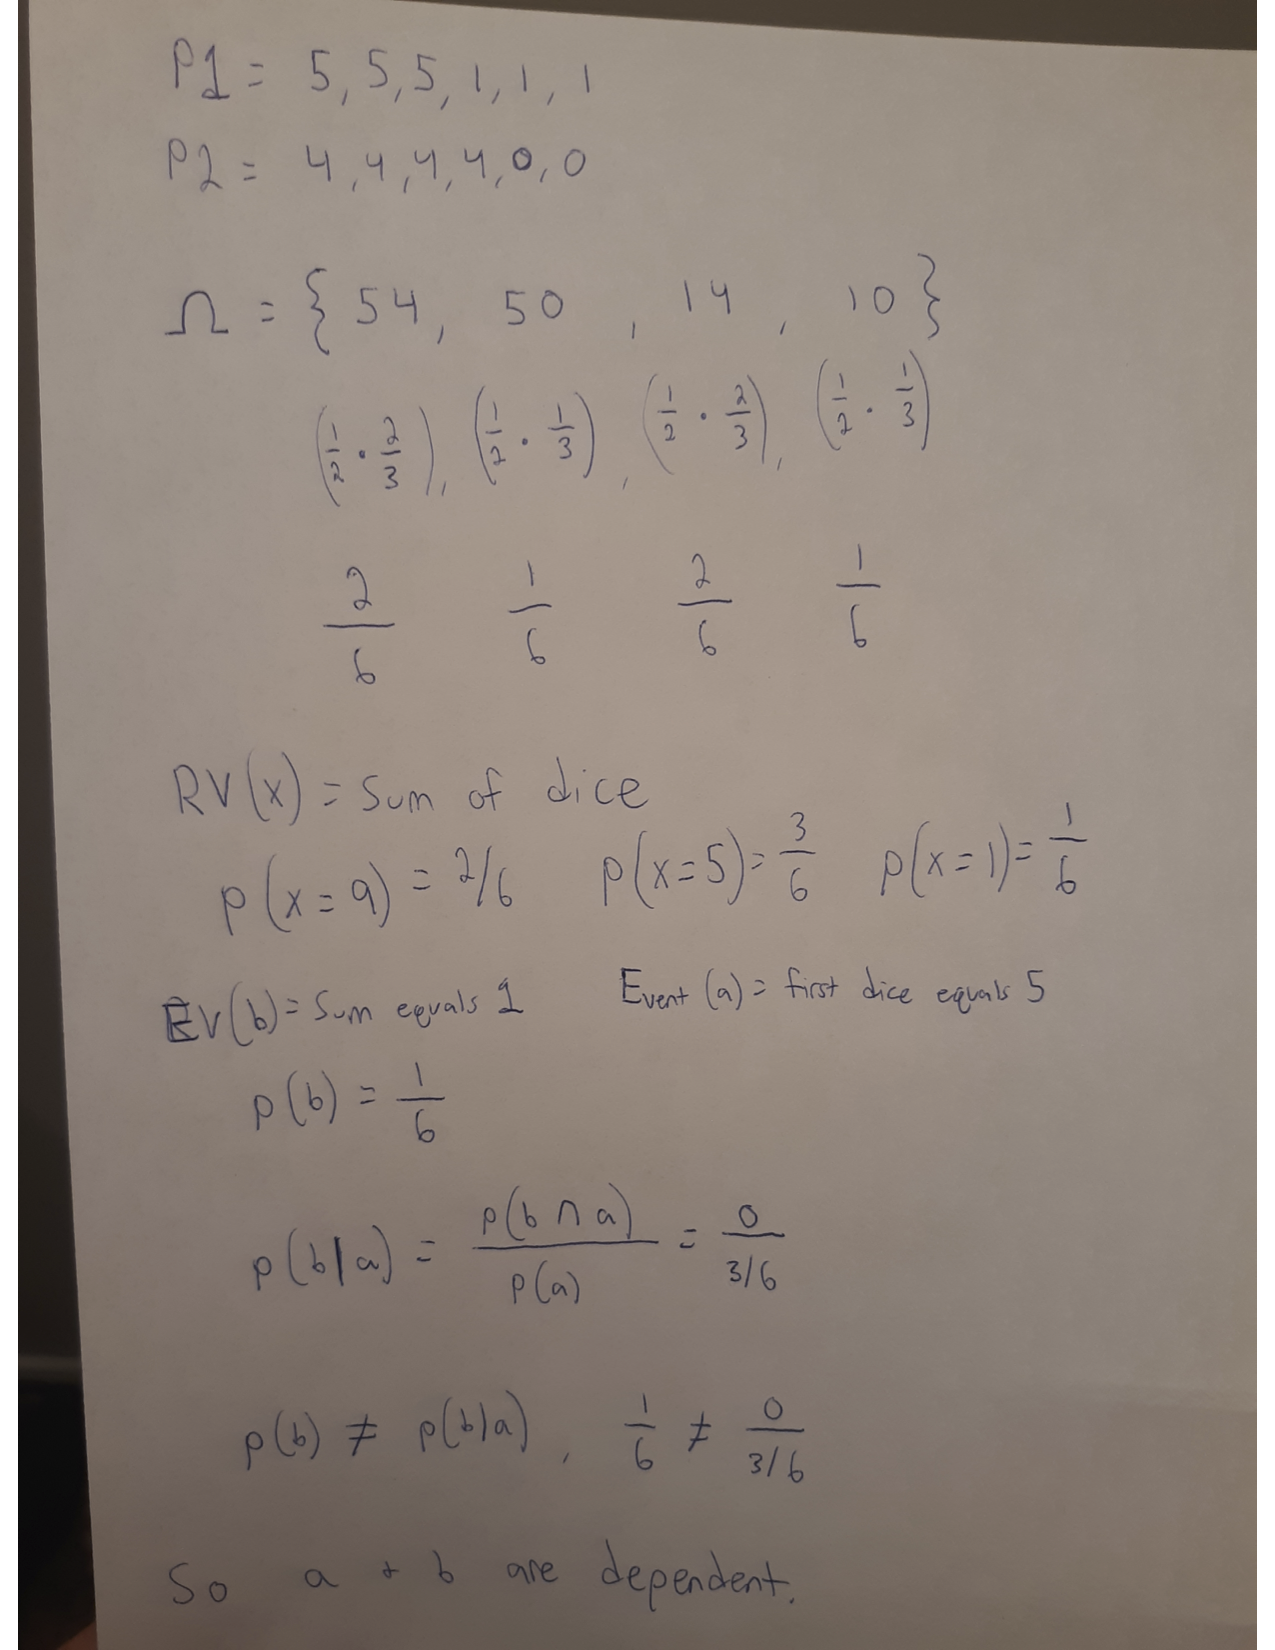 P1 = 5, 5, 5, 1, 1, 1
P2 = 4, 4, 4, 4, 0, 0
Ω = { 54, 50, 14, 10 }
(1/2 · 2/3), (1/2 · 1/3), (1/2 · 2/3), (1/2 · 1/3)
2/6 1/6 2/6 1/6
RV(x) = Sum of dice
p(x=9) = 2/6 p(x=5) = 3/6 p(x=1) = 1/6
EV(b) = Sum equals 1 Event (a) = first dice equals 5
p(b) = 1/6
p(b|a) = p(b ∩ a)/p(a) = 0/(3/6)
p(b) ≠ p(b|a), 1/6 ≠ 0/(3/6)
So a + b are dependent.